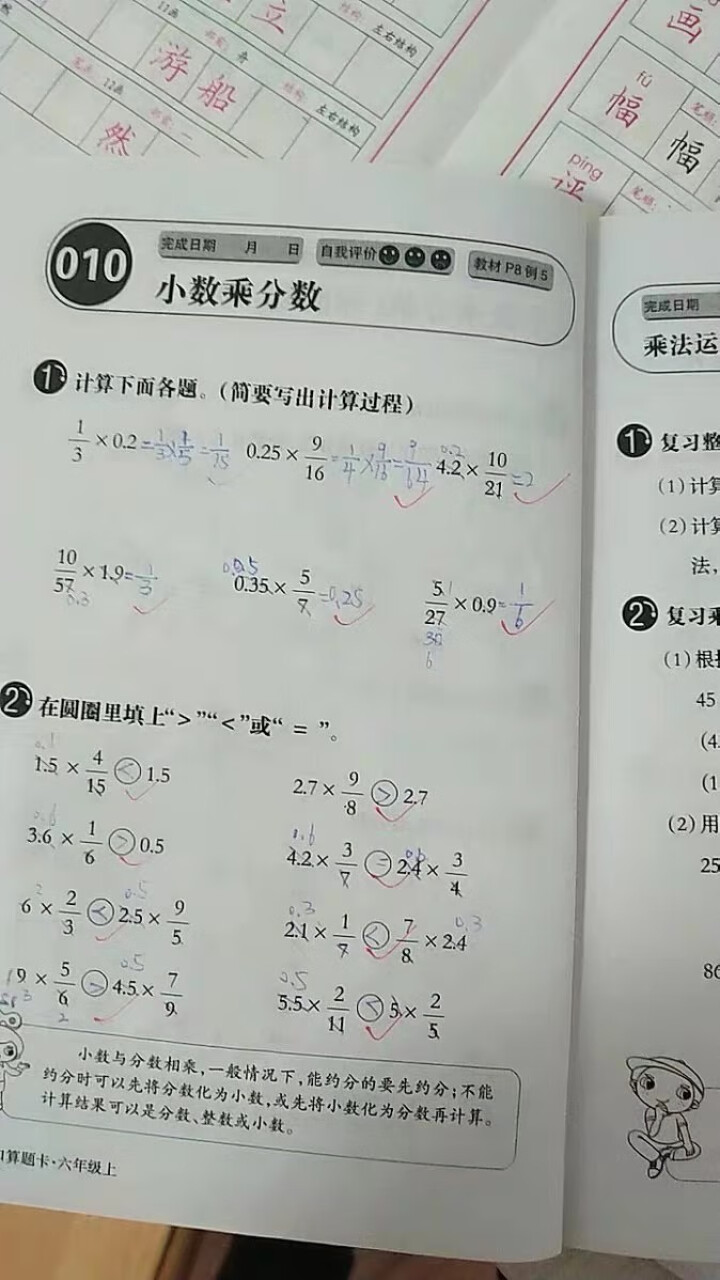 立
13画 部首: 舟 结构: 左右结构
游船
12画 结构: 左右结构
然
画
fú
幅 幅
píng
评
010 完成日期 月 日 自我评价 教材P8例5
小数乘分数
1 计算下面各题。(简要写出计算过程)
1/3 × 0.2 = 1/3 × 1/5 = 1/15 0.25 × 9/16 = 1/4 × 9/16 = 9/64 0.2 4.2 × 10/21 = 2
10/57 × 1.9 = 1/3 0.35 × 5/7 = 0.25 5/27 × 0.9 = 1/6
0.3 0.05 1 30 6
2 在圆圈里填上“>”“<”或“=”。
0.1
1.5 × 4/15 < 1.5 2.7 × 9/8 > 2.7
0.6 0.6 0.6
3.6 × 1/6 > 0.5 4.2 × 3/7 = 2.4 × 3/4
2 0.5 0.3 0.3
6 × 2/3 < 2.5 × 9/5 2.1 × 1/7 < 7/8 × 2.4
0.5 0.5
9 × 5/6 > 4.5 × 7/9 5.5 × 2/11 < 5 × 2/5
3 2
小数与分数相乘,一般情况下,能约分的要先约分;不能
约分时可以先将分数化为小数,或先将小数化为分数再计算。
计算结果可以是分数、整数或小数。
算题卡·六年级上
完成日期
乘法运
1 复习整
(1)计算
(2)计算
法,
2 复习乘
(1)根据
45
(4
(1
(2)用
25
86